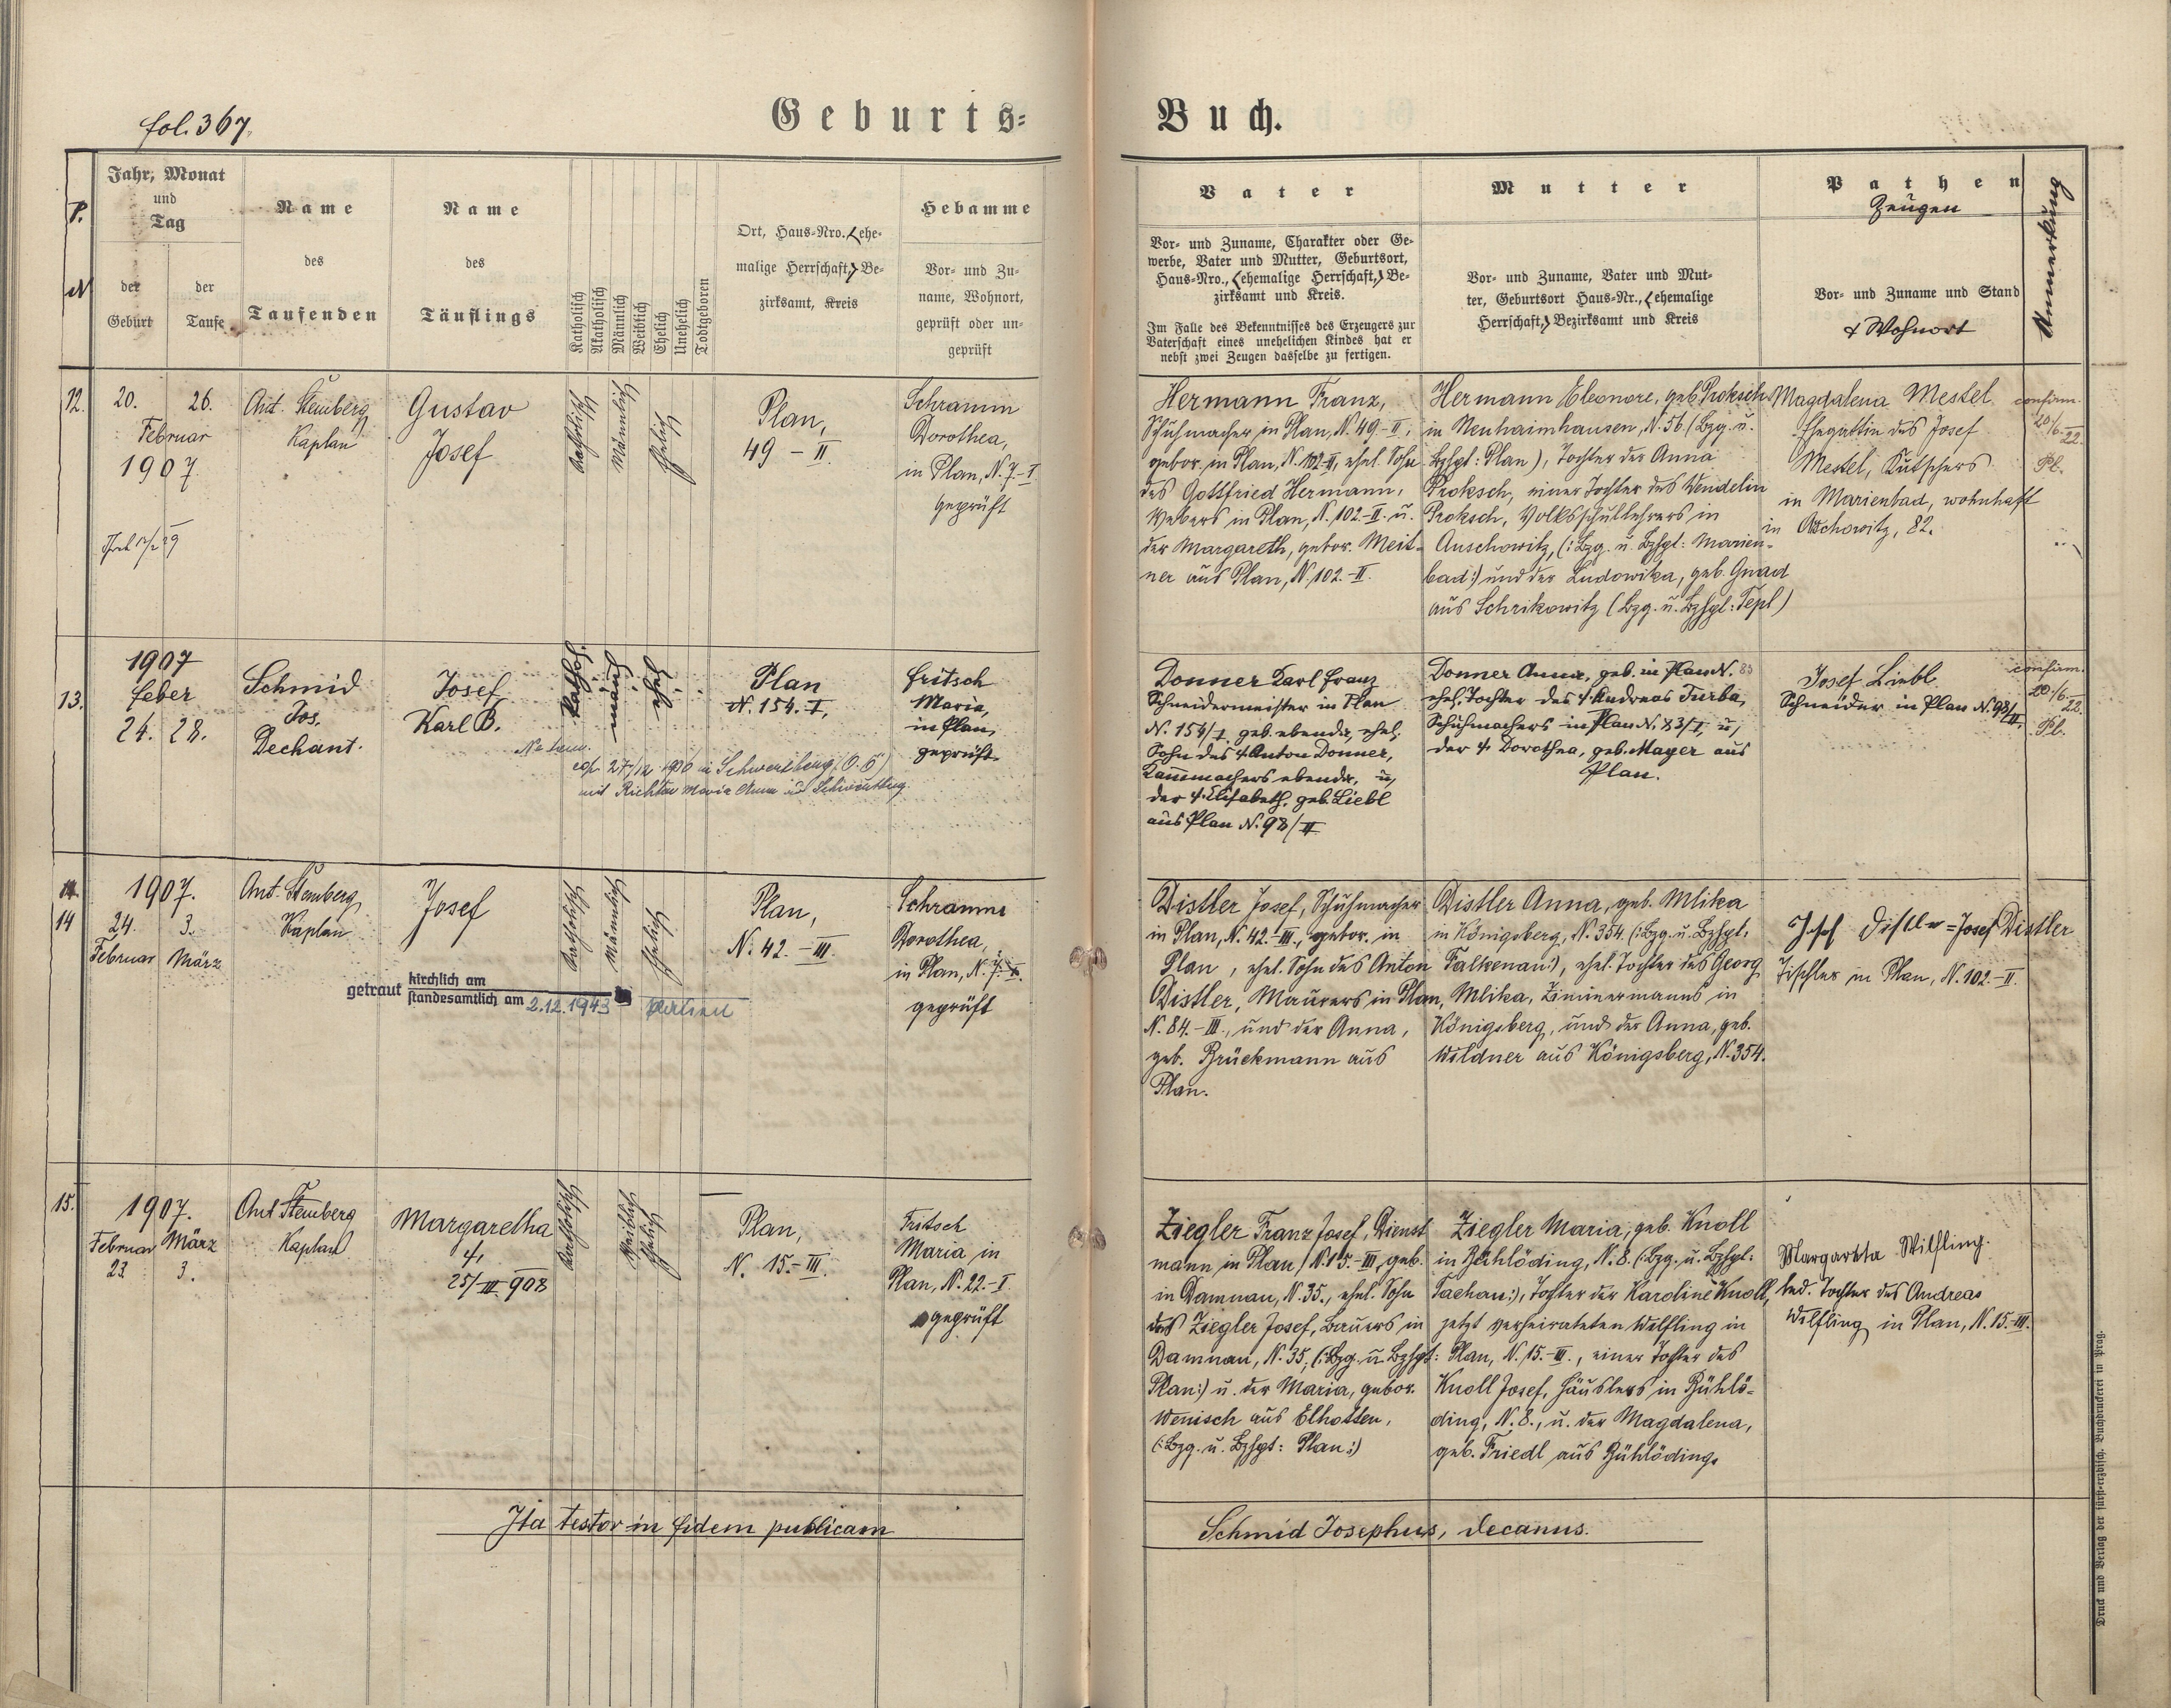 fol. 367.
Geburts=
Buch.
P. N
Jahr, Monat
und
Tag
der
Geburt
der
Taufe
Name
des
Taufenden
Name
des
Täuflings
Katholisch
Akatholisch
Männlich
Weiblich
Ehelich
Unehelich
Todtgeboren
Ort, Haus=Nro. (ehe=
malige Herrschaft,) Be=
zirksamt, Kreis
Hebamme
Vor= und Zu=
name, Wohnort,
geprüft oder un=
geprüft
Vater
Vor= und Zuname, Charakter oder Ge=
werbe, Vater und Mutter, Geburtsort,
Haus=Nro., (ehemalige Herrschaft,) Be=
zirksamt und Kreis.
Im Falle des Bekenntnisses des Erzeugers zur
Vaterschaft eines unehelichen Kindes hat er
nebst zwei Zeugen dasselbe zu fertigen.
Mutter
Vor= und Zuname, Vater und Mut=
ter, Geburtsort Haus=Nr., (ehemalige
Herrschaft,) Bezirksamt und Kreis
Pathen
Zeugen
Vor= und Zuname und Stand
& Wohnort
Anmerkung
12.
20. 26.
Februar
1907
Ant. Stemberg
Kaplan
Gustav
Josef
Katholisch
Männlich
Ehelich
Plan,
49 – II.
Schramm
Dorothea,
in Plan, N. 7-I
geprüft
Hermann Franz,
Schuhmacher in Plan, N. 49-II,
gebor. in Plan, N. 102-II, ehel. Sohn
des Gottfried Hermann,
Webers in Plan, N. 102-II. u.
der Margareth, gebor. Meit-
ner aus Plan, N. 102.-II.
Hermann Eleonore, geb. Proksch
in Neuhaimhausen, N. 56. (Bzg. u.
Bzhgt: Plan), Tochter der Anna
Proksch, einer Tochter des Wendelin
Proksch, Volksschullehrers in
Auschowitz, (: Bzg. u. Bzhgt: Marien-
bad:) und der Ludowika, geb. Gnad
aus Schrikowitz (Bzg. u. Bzhgt: Tepl)
Magdalena Mestel
Ehegattin des Josef
Mestel, Kutschers
in Marienbad, wohnhaft
in Auschowitz, 82.
confirm.
20./6. 22.
Pl.
13.
1907
Feber
24. 28.
Schmid
Jos.
Dechant.
Josef
Karl B.
kathol.
männl.
ehel.
Plan
N. 154. I,
Fritsch
Maria,
in Plan,
geprüft.
cop. 27/12 1930 in Schwertberg (O. Ö)
mit Richter Maria Anna in Schwertberg.
Donner Karl Franz
Schneidermeister in Plan
N. 154/I geb. ebenda, ehel.
Sohn des † Anton Donner,
Kammachers ebenda, u,
der † Elisabeth, geb. Liebl
aus Plan N. 98/II
Donner Anna, geb. in Plan N. 83
ehel. Tochter des † Andreas Turba,
Schuhmachers in Plan N. 83/I, u,
der † Dorothea, geb. Mayer aus
Plan.
Josef Liebl
Schneider in Plan N. 98/II,
confirm.
20./6. 22.
Pl.
14
1907.
24. 3.
Februar März
Ant. Stemberg
Kaplan
Josef
getraut kirchlich am
standesamtlich am 2.12.1943
Katholisch
Männlich
Ehelich
Plan,
N. 42. – III.
Schramm
Dorothea,
in Plan, N. 7-I.
geprüft
Distler Josef, Schuhmacher
in Plan, N. 42.-III., gebor. in
Plan, ehel. Sohn des Anton
Distler, Maurers in Plan,
N. 84.-III., und der Anna,
geb. Brückmann aus
Plan.
Distler Anna, geb. Mlika
in Königsberg, N. 354. (: Bzg. u. Bzhgt.
Falkenau:), ehel. Tochter des Georg
Mlika, Zimmermanns in
Königsberg, und der Anna, geb.
Wildner aus Königsberg, N. 354.
Josef Distler = Josef Distler
Tischler in Plan, N. 102.-II.
15.
1907.
Februar März
23. 3.
Ant Stemberg
Kaplan
Margaretha
†,
25/III. 908
Katholisch
Weiblich
Ehelich
Plan,
N. 15.-III.
Fritsch
Maria in
Plan, N. 22.-I.
geprüft
Ziegler Franz Josef, Dienst
mann in Plan, N. 15.-III, geb.
in Damnau, N. 35., ehel. Sohn
des Ziegler Josef, Bauers in
Damnau, N. 35, (: Bzg. u. Bzhgt:
Plan:) u. der Maria, gebor.
Wenisch aus Elhotten,
(: Bzg. u. Bzhgt: Plan:)
Ziegler Maria, geb. Knoll
in Rühlöding, N. 8. (: Bzg. u. Bzhgt:
Tachau:), Tochter der Karoline Knoll,
jetzt verheirateten Wilfling in
Plan, N. 15.-III., einer Tochter des
Knoll Josef, Häuslers in Rühlö-
ding, N. 8., u. der Magdalena,
geb. Friedl aus Rühlöding.
Margareta Wilfling.
led. Tochter des Andreas
Wilfling in Plan, N. 15.-III.
Ita testor in fidem publicam
Schmid Josephus, decanus.
Druck und Verlag der fürst=erzbisch. Buchdruckerei in Prag.